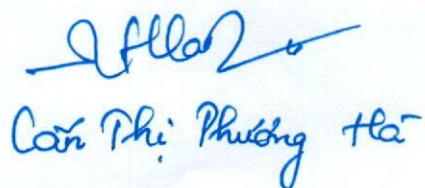 Cấn Thị Phương Hà